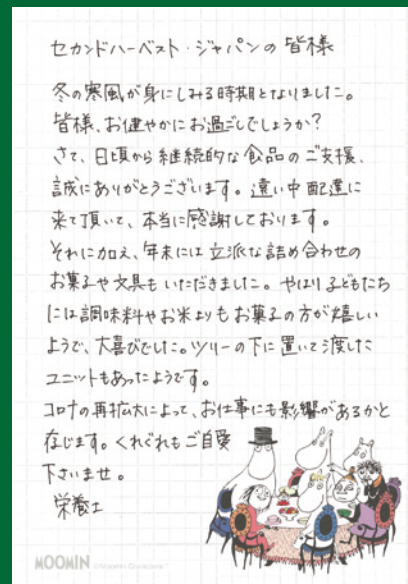 セカンドハーベスト・ジャパンの皆様
冬の寒風が身にしみる時期となりました。
皆様、お健やかにお過ごしでしょうか?
さて、日頃から継続的な食品のご支援、
誠にありがとうございます。遠い中配達に
来て頂いて、本当に感謝しております。
それに加え、年末には立派な詰め合わせの
お菓子や文具もいただきました。やはり子どもたち
には調味料やお米よりもお菓子の方が嬉しい
ようで、大喜びでした。ツリーの下に置いて渡した
ユニットもあったようです。
コロナの再拡大によって、お仕事にも影響があるかと
存じます。くれぐれもご自愛
下さいませ。
栄養士
MOOMIN ©Moomin Characters™